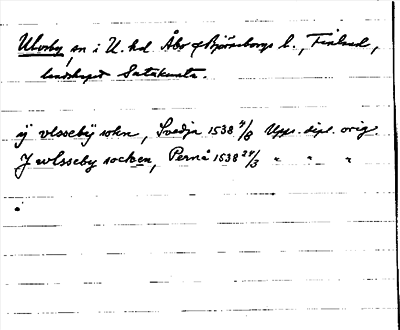 Ulvsby, sn i U. hd Åbo o Björneborgs l., Finland,
landskapet Satakunta.
ij vlsseby sokn, Svedja 1538 4/8 Upps. dipl. orig.
J wlsseby socken, Pernå 1538 28/3 " " "